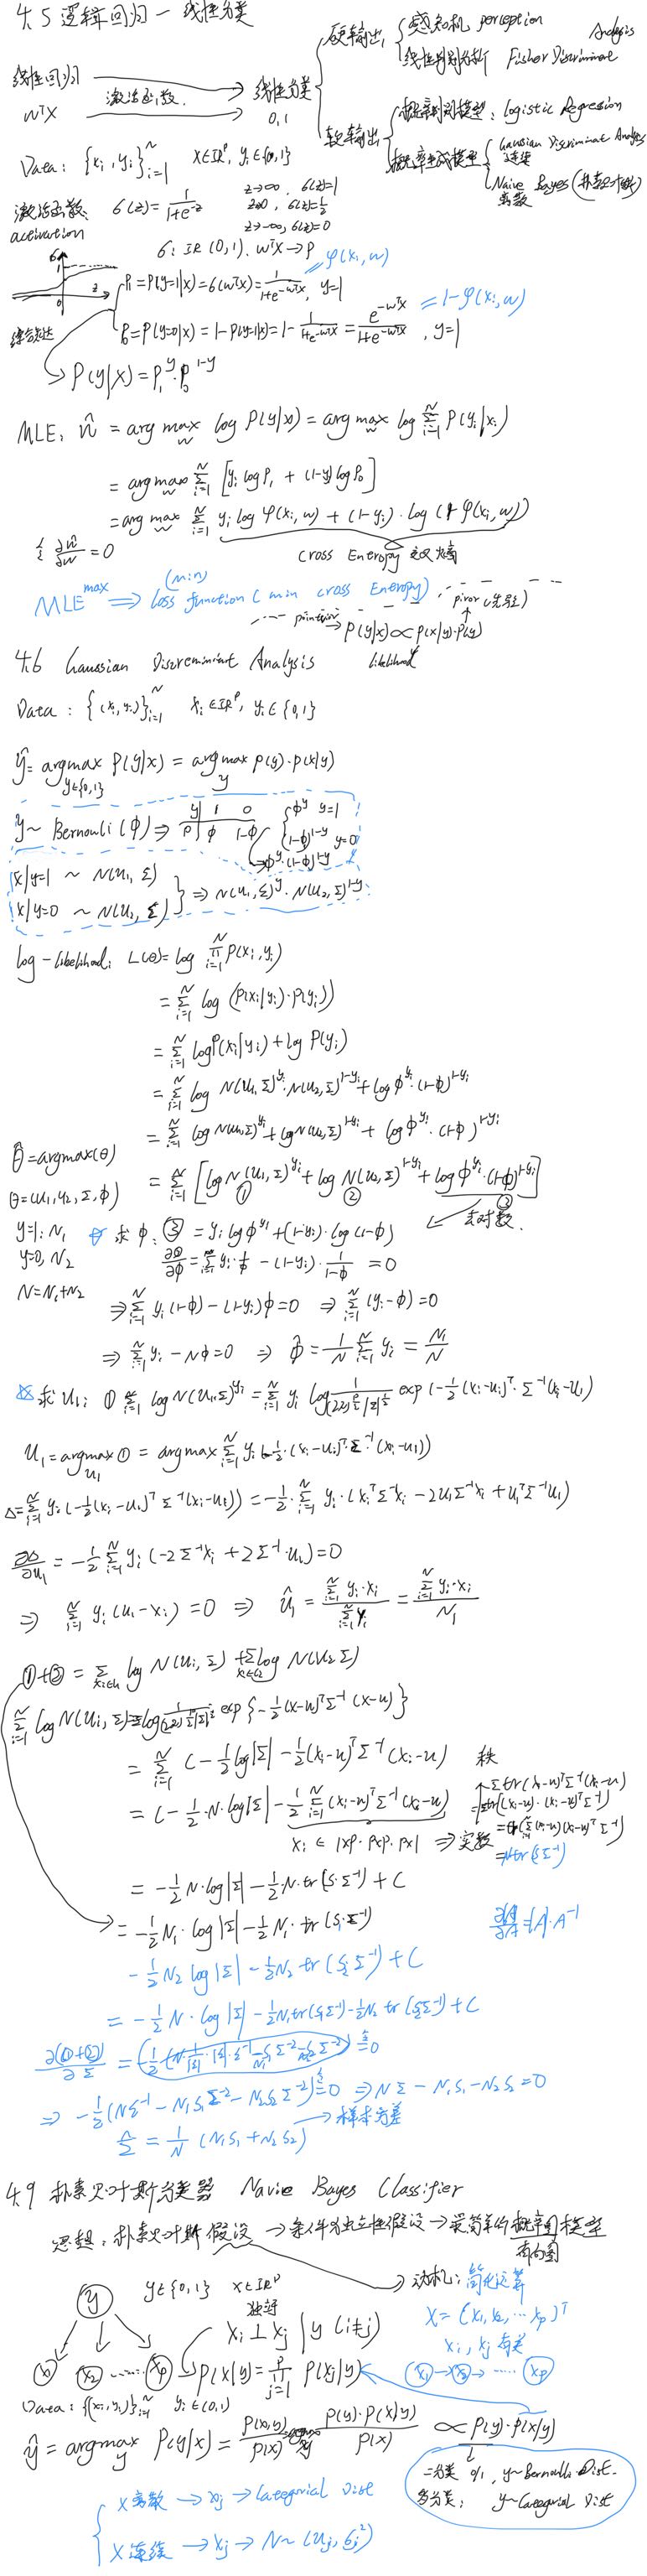 4.5 逻辑回归 — 线性分类
硬输出 { 感知机 perception
线性判别分析 Fisher Discriminant Analysis
线性回归 激活函数 → 线性分类
wᵀx 0, 1
软输出 { 概率判别模型: Logistic Regression
概率生成模型 { Gaussian Discriminant Analysis 连续
Naive Bayes (朴素贝叶斯) 离散
Data: {xᵢ, yᵢ}ᵢ₌₁ᴺ x∈ℝᵖ, yᵢ∈{0,1}
激活函数: σ(z) = 1/(1+e^{-z}) z→∞, σ(z)=1
activation z→0, σ(z)=1/2
z→-∞, σ(z)=0
σ: ℝ (0,1). wᵀx → p
P₁ = P(y=1|x) = σ(wᵀx) = 1/(1+e^{-wᵀx}), y=1 = φ(xᵢ, w)
P₀ = P(y=0|x) = 1-P(y=1|x) = 1 - 1/(1+e^{-wᵀx}) = e^{-wᵀx}/(1+e^{-wᵀx}), y=1 = 1-φ(xᵢ, w)
综合表达
→ P(y|x) = P₁^y · P₀^{1-y}
MLE: ŵ = arg max_w log P(y|x) = arg max_w log Σᵢ₌₁ᴺ P(yᵢ|xᵢ)
= arg max_w Σᵢ₌₁ᴺ [yᵢ log P₁ + (1-y) log P₀]
= arg max_w Σᵢ₌₁ᴺ yᵢ log φ(xᵢ, w) + (1-yᵢ) · log (1-φ(xᵢ, w))
∂ŵ/∂w = 0 Cross Entropy 交叉熵
MLE max ⇒ loss function (min cross Entropy) (min)
prior (先验)
P(y|x) ∝ P(x|y)·P(y)
4.6 Gaussian Discreminient Analysis
Data: {(xᵢ, yᵢ)}ᵢ₌₁ᴺ xᵢ∈ℝᵖ, yᵢ∈{0,1}
ŷ = argmax_{y∈{0,1}} P(y|x) = argmax_y P(y)·P(x|y)
y ~ Bernouli (φ) ⇒ y 1 0
P φ 1-φ
{ φ^y y=1
(1-φ)^{1-y} y=0
⇒ φ^y·(1-φ)^{1-y}
x|y=1 ~ N(u₁, Σ)
x|y=0 ~ N(u₂, Σ) } ⇒ N(u₁,Σ)^y · N(u₂,Σ)^{1-y}
log-likelihood: L(θ) = log Πᵢ₌₁ᴺ P(xᵢ, yᵢ)
= Σᵢ₌₁ᴺ log (P(xᵢ|yᵢ)·P(yᵢ))
= Σᵢ₌₁ᴺ log P(xᵢ|yᵢ) + log P(yᵢ)
= Σᵢ₌₁ᴺ log N(u₁,Σ)^{yᵢ}·N(u₂,Σ)^{1-yᵢ} + log φ^{yᵢ}·(1-φ)^{1-yᵢ}
= Σᵢ₌₁ᴺ log N(u₁,Σ)^{yᵢ} + log N(u₂,Σ)^{1-yᵢ} + log φ^{yᵢ}·(1-φ)^{1-yᵢ}
θ̂ = argmax(θ) = Σᵢ₌₁ᴺ [log N(u₁,Σ)^{yᵢ} + log N(u₂,Σ)^{1-yᵢ} + log φ^{yᵢ}·(1-φ)^{1-yᵢ}]
θ = (u₁, u₂, Σ, φ) ① ② ③
y=1: N₁ ☆ 求φ: ③ = yᵢ log φ^{yᵢ} + (1-yᵢ)·log(1-φ) 求对数.
y=0, N₂ ∂③/∂φ = Σᵢ₌₁ᴺ yᵢ·1/φ - (1-yᵢ)·1/(1-φ) = 0
N = N₁+N₂ ⇒ Σᵢ₌₁ᴺ yᵢ(1-φ) - (1-yᵢ)φ = 0 ⇒ Σᵢ₌₁ᴺ (yᵢ-φ) = 0
⇒ Σᵢ₌₁ᴺ yᵢ - Nφ = 0 ⇒ φ̂ = 1/N Σᵢ₌₁ᴺ yᵢ = N₁/N
☆ 求u₁: ① Σᵢ₌₁ᴺ log N(u₁,Σ)^{yᵢ} = Σᵢ₌₁ᴺ yᵢ log 1/((2π)^{p/2}|Σ|^{1/2}) exp(-1/2 (xᵢ-u₁)ᵀ·Σ⁻¹(xᵢ-u₁))
u₁ = argmax_{u₁} ① = argmax Σᵢ₌₁ᴺ yᵢ(-1/2·(xᵢ-u₁)ᵀ·Σ⁻¹(xᵢ-u₁))
Δ = Σᵢ₌₁ᴺ yᵢ(-1/2(xᵢ-u₁)ᵀ Σ⁻¹(xᵢ-u₁)) = -1/2·Σᵢ₌₁ᴺ yᵢ·(xᵢᵀΣ⁻¹xᵢ - 2u₁Σ⁻¹xᵢ + u₁ᵀΣ⁻¹u₁)
∂Δ/∂u₁ = -1/2 Σᵢ₌₁ᴺ yᵢ(-2Σ⁻¹xᵢ + 2Σ⁻¹·u₁) = 0
⇒ Σᵢ₌₁ᴺ yᵢ(u₁-xᵢ) = 0 ⇒ û₁ = Σᵢ₌₁ᴺ yᵢ·xᵢ / Σᵢ₌₁ᴺ yᵢ = Σᵢ₌₁ᴺ yᵢ·xᵢ / N₁
①+② = Σ_{xᵢ∈c₁} log N(u₁, Σ) + Σ_{xᵢ∈c₂} log N(u₂, Σ)
Σᵢ₌₁ᴺ log N(uᵢ, Σ) = Σ log 1/((2π)^{p/2}|Σ|^{1/2}) exp{-1/2(x-u)ᵀΣ⁻¹(x-u)}
= Σᵢ₌₁ᴺ C - 1/2 log|Σ| - 1/2(xᵢ-u)ᵀΣ⁻¹(xᵢ-u) 秩
= C - 1/2·N·log|Σ| - 1/2 Σᵢ₌₁ᴺ (xᵢ-u)ᵀΣ⁻¹(xᵢ-u)
Σtr(xᵢ-u)ᵀΣ⁻¹(xᵢ-u)
= Σtr((xᵢ-u)·(xᵢ-u)ᵀΣ⁻¹)
= tr(Σ(xᵢ-u)(xᵢ-u)ᵀΣ⁻¹)
= Ntr(SΣ⁻¹)
xᵢ ∈ 1×p·p×p·p×1 ⇒ 实数
= -1/2 N·log|Σ| - 1/2 N·tr(S·Σ⁻¹) + C
= -1/2 N₁·log|Σ| - 1/2 N₁·tr(S₁·Σ⁻¹) ∂|A|/∂A = |A|·A⁻¹
-1/2 N₂ log|Σ| - 1/2 N₂ tr(S₂Σ⁻¹) + C
= -1/2 N·log|Σ| - 1/2 N₁tr(S₁Σ⁻¹) - 1/2 N₂ tr(S₂Σ⁻¹) + C
∂(①+②)/∂Σ = -1/2 (N·1/|Σ|·|Σ|·Σ⁻¹ - N₁S₁Σ⁻² - N₂S₂Σ⁻²) = 0
⇒ -1/2(NΣ⁻¹ - N₁S₁Σ⁻² - N₂S₂Σ⁻²) = 0 ⇒ NΣ - N₁S₁ - N₂S₂ = 0
Σ̂ = 1/N (N₁S₁ + N₂S₂) → 样本方差
4.9 朴素贝叶斯分类器 Navie Bayes Classifier
思想: 朴素贝叶斯假设 → 条件独立性假设 → 最简单的概率图模型
有向图
动机: 简化运算
y y∈{0,1} x∈ℝᵖ
独立
xᵢ ⊥ xⱼ | y (i≠j)
x = (x₁, x₂, ··· xₚ)ᵀ
xᵢ, xⱼ 有关
x₁ x₂ ······ xₚ P(x|y) = Πⱼ₌₁ᵖ P(xⱼ|y) x₁→x₂→ ····· xₚ
Data: {(xᵢ,yᵢ)}ᵢ₌₁ᴺ yᵢ∈(0,1)
ŷ = argmax_y P(y|x) = P(x,y)/P(x) = P(y)·P(x|y)/P(x) ∝ P(y)·P(x|y)
二分类 0/1, y~Bernoulli Dist.
多分类: y~Categorial Dist
{ x 离散 → xⱼ → Categorial Dist
x 连续 → xⱼ → N~(uⱼ, σⱼ²)